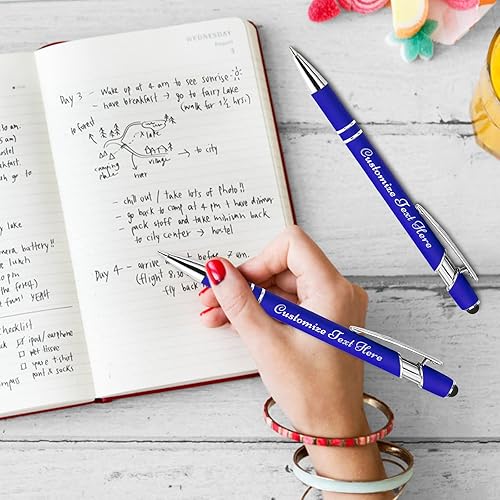 WEDNESDAY
August
3
Day 3 - Wake up at 4 am to see sunrise
- have breakfast → go to fairy lake
(walk for 1½ hrs.)
to forest
lake
camping
village
→ to city
river
- chill out / take lots of photo!!
- go back to camp at 4 pm & have dinner
- pack stuff and take minivan back
to city center → hostel
Day 4 - arrive before 7 am
(flight
fly back
10 am.
am)
breakfast
go to
lake
camera battery!!
lunch
the forest)
fun) YEAH
checklist
ipod/earphone
wet tissue
pair t-shirt
pant & socks
compass
Customize Text Here
Customize Text Here